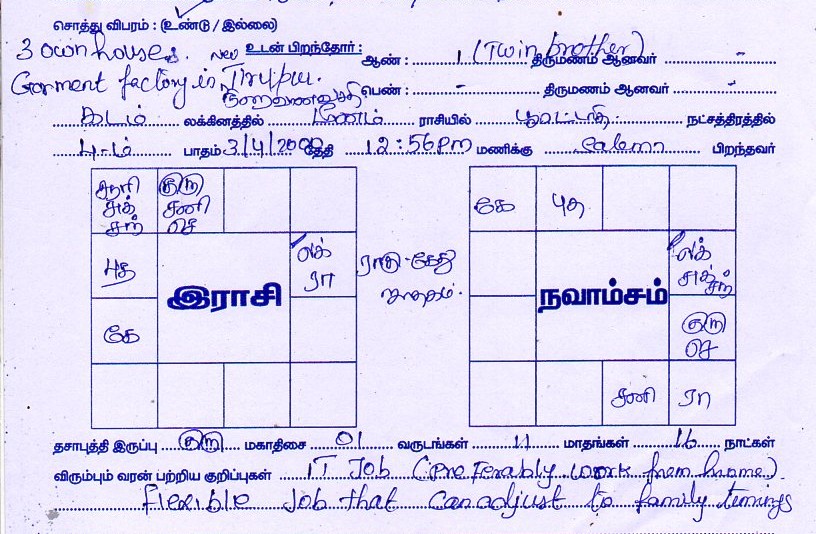 சொத்து விபரம் : (உண்டு / இல்லை)
3 own houses. New உடன் பிறந்தோர் : ஆண் : 1 (Twin brother) திருமணம் ஆனவர் -
Garment factory in Tirupur. பெண் : - திருமணம் ஆனவர் -
கடகம் லக்கினத்தில் மீனம் ராசியில் பூரட்டாதி நட்சத்திரத்தில்
4-ம் பாதம் 3/4/2000 தேதி 12:56pm மணிக்கு Salem பிறந்தவர்
சூரி குரு
சுக் சனி
சந் செ
லக்
புத ரா
இராசி
கே
ராகு-கேது
ஜாதகம்.
கே புத
லக்
சுக் சந்
நவாம்சம்
குரு
செ
சனி ரா
தசாபுத்தி இருப்பு குரு மகாதிசை 01 வருடங்கள் 11 மாதங்கள் 16 நாட்கள்
விரும்பும் வரன் பற்றிய குறிப்புகள் IT Job (preferably work from home)
flexible Job that can adjust to family timings